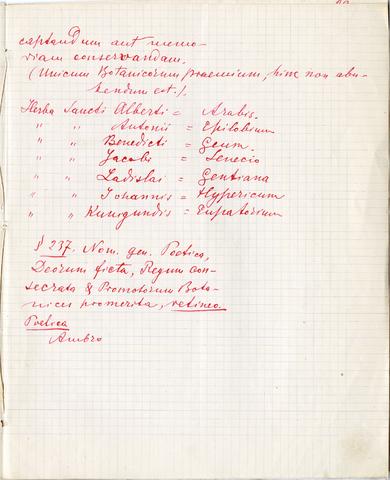 captandum aut memo-
riam conservandam.
(Unicum Botanicorum praemium, hinc non abu-
tendum est.).
Herba Sancti Alberti = Arabis.
" " Antonii = Epilobium
" " Benedicti = Geum.
" " Jacobi = Senecio
" " Ladislai = Gentiana
" " Johannis = Hypericum
" " Kunigundis = Eupatorium
§ 237. Nom. gen. Poetica,
Deorum ficta, Regum con-
secrata & Promotorum Bota-
nices promerita, retineo.
Poetica
Ambro